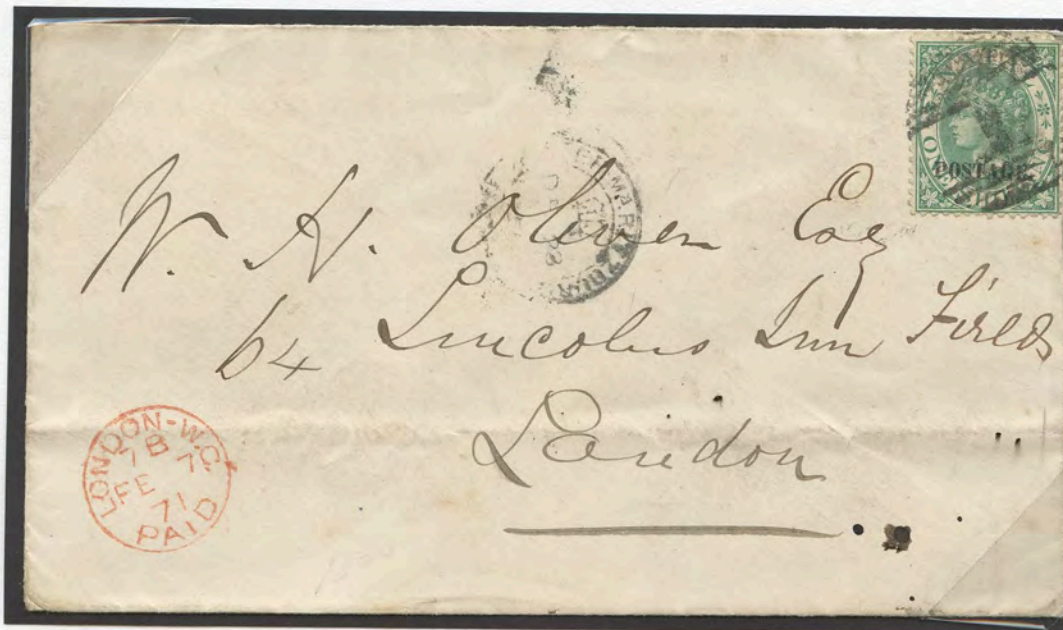 NATAL
ONE
POSTAGE
W. H. Oliver Esq
64 Lincolns Inn Fields
London
LONDON-W.C
7 B 7
FE
71
PAID